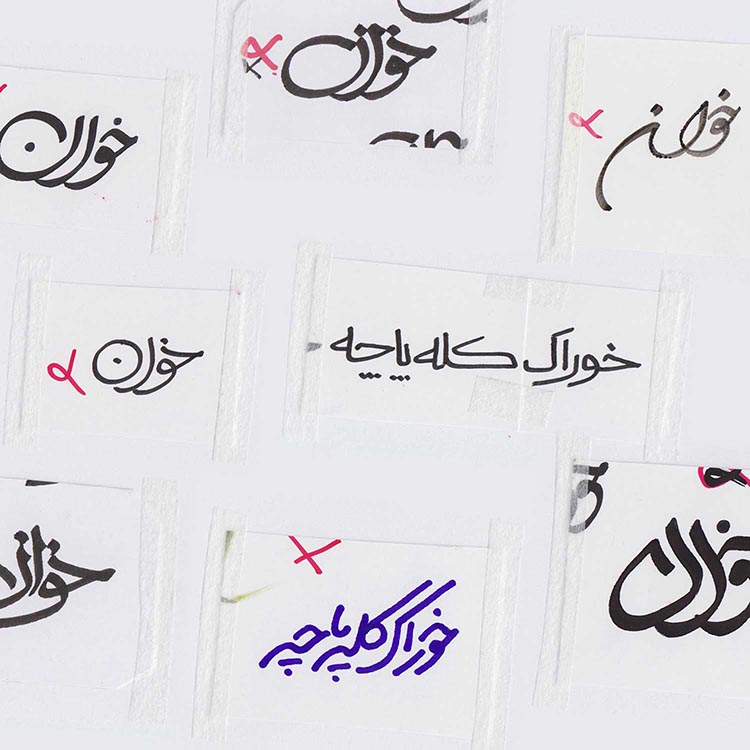 خوان
خوان
خوان
خوراک کله پاچه
خوان
خوان
خوراک کله پاچه